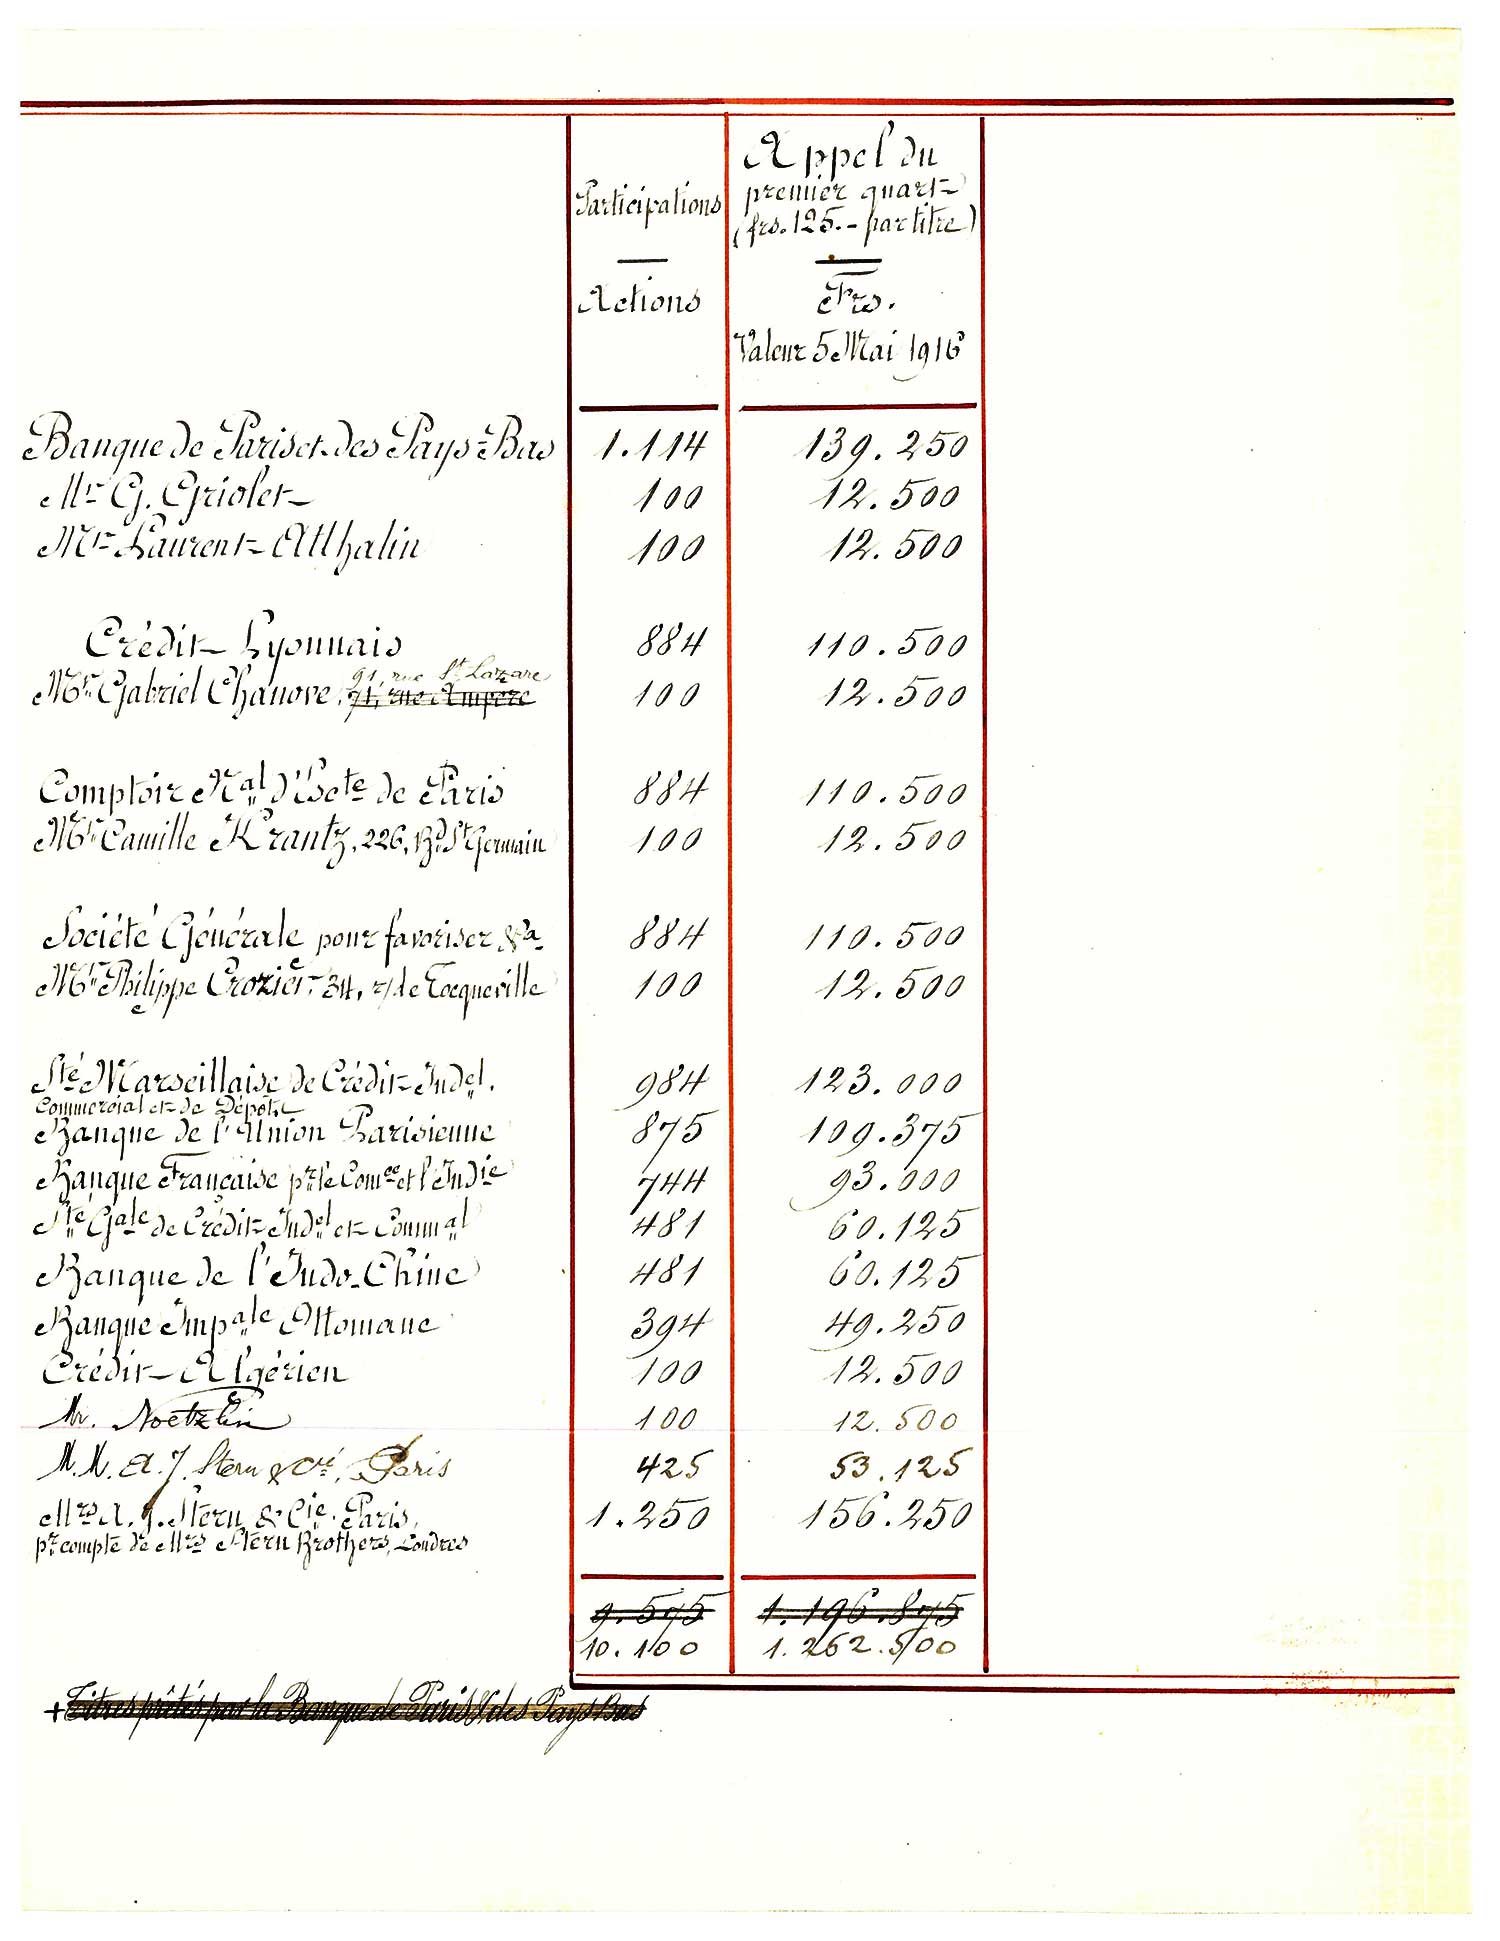 Participations
—
Actions
Appel du
premier quart
(frs. 125.- par titre)
—
Frs.
Valeur 5 Mai 1916
Banque de Paris et des Pays-Bas 1.114 139.250
Mr G. Griolet 100 12.500
Mr Laurent-Atthalin 100 12.500
Crédit Lyonnais 884 110.500
91, rue St Lazare
Mr Gabriel Chanove, 71, rue Ampère 100 12.500
Comptoir Nal d'Escte de Paris 884 110.500
Mr Camille Krantz, 226, Bd St Germain 100 12.500
Société Générale pour favoriser &a 884 110.500
Mr Philippe Crozier, 34, r/de Tocqueville 100 12.500
Sté Marseillaise de Crédit Indel. 984 123.000
Commercial et de Dépôts
Banque de l'Union Parisienne 875 109.375
Banque Française pr le Comce et l'Indie 744 93.000
Sté Gale de Crédit Indel et Commal 481 60.125
Banque de l'Indo-Chine 481 60.125
Banque Impale Ottomane 394 49.250
Crédit Algérien 100 12.500
Mr. Noetzlin 100 12.500
M.M. A. J. Stern & Cie, Paris 425 53.125
Mrs A. J. Stern & Cie. Paris, 1.250 156.250
pr compte de Mrs Stern Brothers, Londres
9.575 1.196.875
10.100 1.262.500
+ Titres prêtés par la Banque de Paris & des Pays Bas